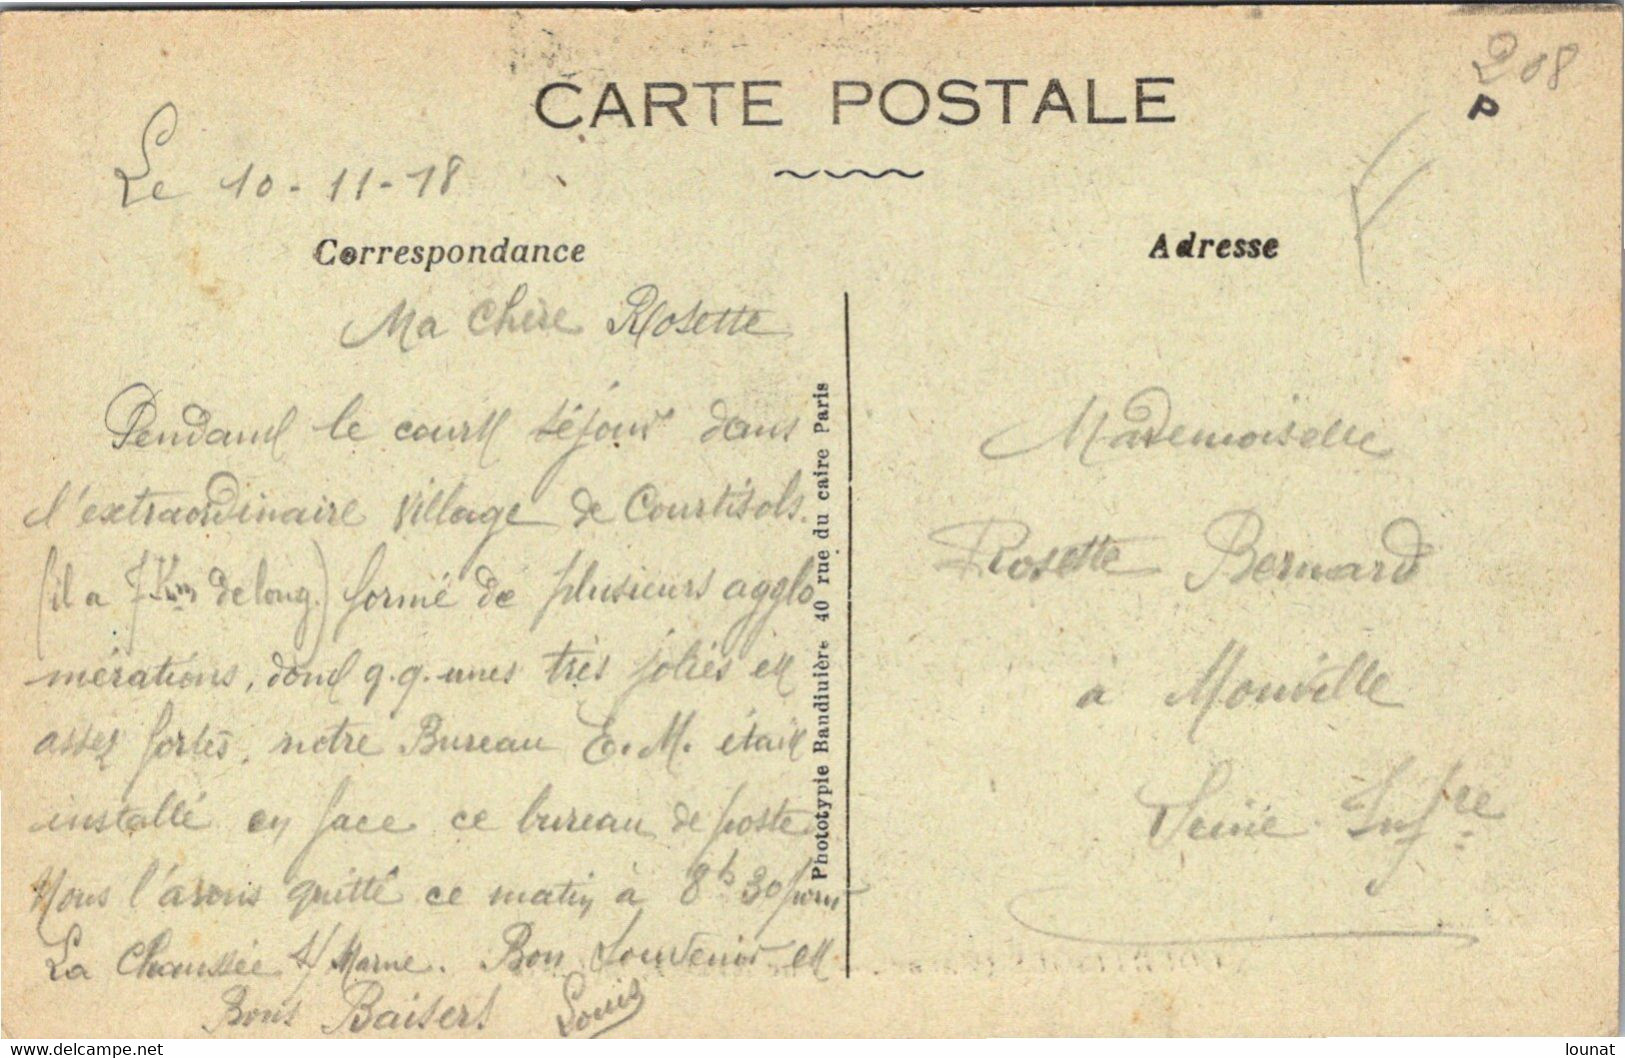 208
P
CARTE POSTALE
Le 10-11-18
Correspondance
Adresse
Ma Chère Rosette
Pendant le court séjour dans
l'extraordinaire village de Courtisols.
(il a 7 Km de long.) formé de plusieurs agglo
mérations, dont q.q. unes très jolies et
assez fortes, notre Bureau E.M. était
installé en face ce bureau de poste
Nous l'avons quitté ce matin à 8h30 pour
La Chaussée s/ Marne. Bon Souvenir et
Bons Baisers Louis
Phototypie Bandiuière 40 rue du caire Paris
Mademoiselle
Rosette Bernard
à Monville
Seine Infre
https://www.delcampe.net
lounat